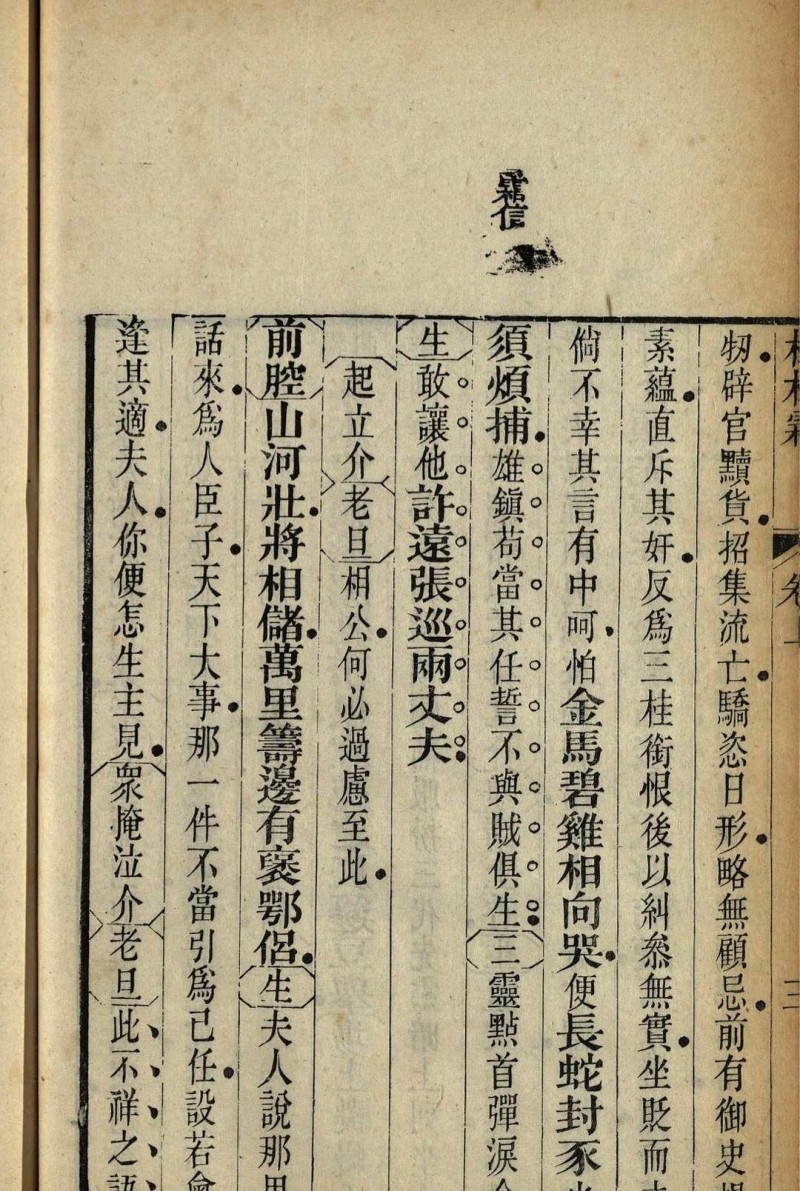 卷上
三
牣辟官黷貨招集流亡驕恣日形略無顧忌前有御史
素蘊直斥其奸反爲三桂銜恨後以糾叅無實坐貶而
倘不幸其言有中呵怕金馬碧雞相向哭便長蛇封豕
須煩捕雄鎮苟當其任誓不與賊俱生三靈點首彈淚
生敢讓他許遠張巡兩丈夫
起立介老旦相公何必過慮至此
前腔山河壯將相儲萬里籌邊有褒鄂侶生夫人說那
話來爲人臣子天下大事那一件不當引爲己任設若
逢其適夫人你便怎生主見衆掩泣介老旦此不祥之語